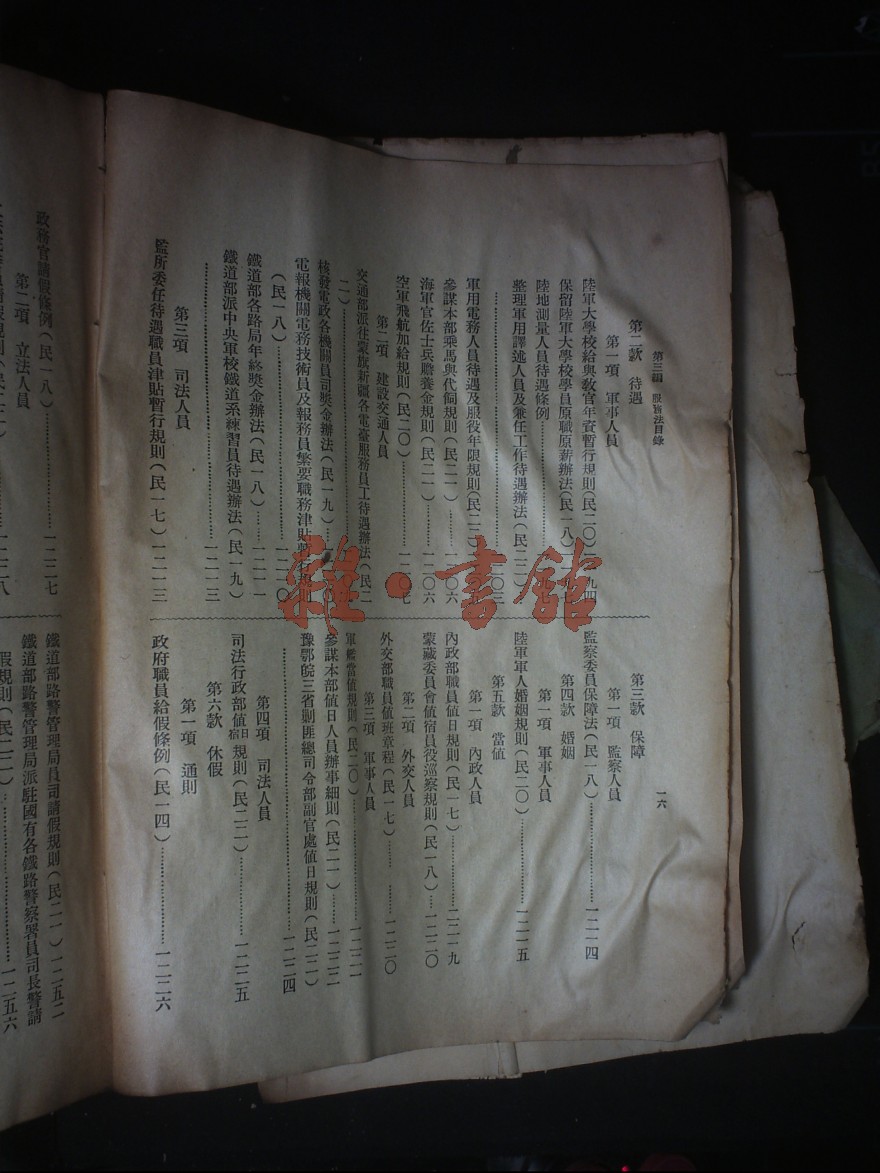 第三編 服務法目錄
一六
第二款 待遇
第一項 軍事人員
陸軍大學校給與敎官年資暫行規則(民二〇)
保留陸軍大學校學員原職原薪辦法(民一八)
陸地測量人員待遇條例
整理軍用譯述人員及兼任工作待遇辦法(民二二)
軍用電務人員待遇及服役年限規則(民二二)
參謀本部乘馬與代僱規則(民二一)……一二〇六
海軍官佐士兵贍養金規則(民二一)……一二〇六
空軍飛航加給規則(民二〇)……一二〇七
第二項 建設交通人員
交通部派往蒙藏新疆各電臺服務員工待遇辦法(民二
二)
核發電政各機關員司獎金辦法(民一九)
電報機關電務技術員及報務員繁要職務津貼暫行規則
(民一八)……一二一〇
鐵道部各路局年終獎金辦法(民一八)……一二一一
鐵道部派中央軍校鐵道系練習員待遇辦法(民一九)
……一二一三
第三項 司法人員
監所委任待遇職員津貼暫行規則(民一七)一二一三
第三款 保障
第一項 監察人員
監察委員保障法(民一八)……一二一四
第四款 婚姻
第一項 軍事人員
陸軍軍人婚姻規則(民二〇)……一二一五
第五款 當值
第一項 內政人員
內政部職員值日規則(民一七)……一二一九
蒙藏委員會值宿員役巡察規則(民一八)一二二〇
第二項 外交人員
外交部職員值班章程(民一七)……一二二〇
第三項 軍事人員
軍艦當值規則(民二〇)……一二二一
參謀本部值日人員辦事細則(民二一)一二二二
豫鄂皖三省剿匪總司令部副官處值日規則(民二二)
……一二二四
第四項 司法人員
司法行政部值日宿規則(民二二)……一二二五
第六款 休假
第一項 通則
政府職員給假條例(民一四)……一二二六
政務官請假條例(民一八)……一二二七
第二項 立法人員
鐵道部路警管理局員司請假規則(民二一)一二五二
鐵道部路警管理局派駐國有各鐵路警察署員司長警請
假規則(民二二)……一二五六
雜·書館